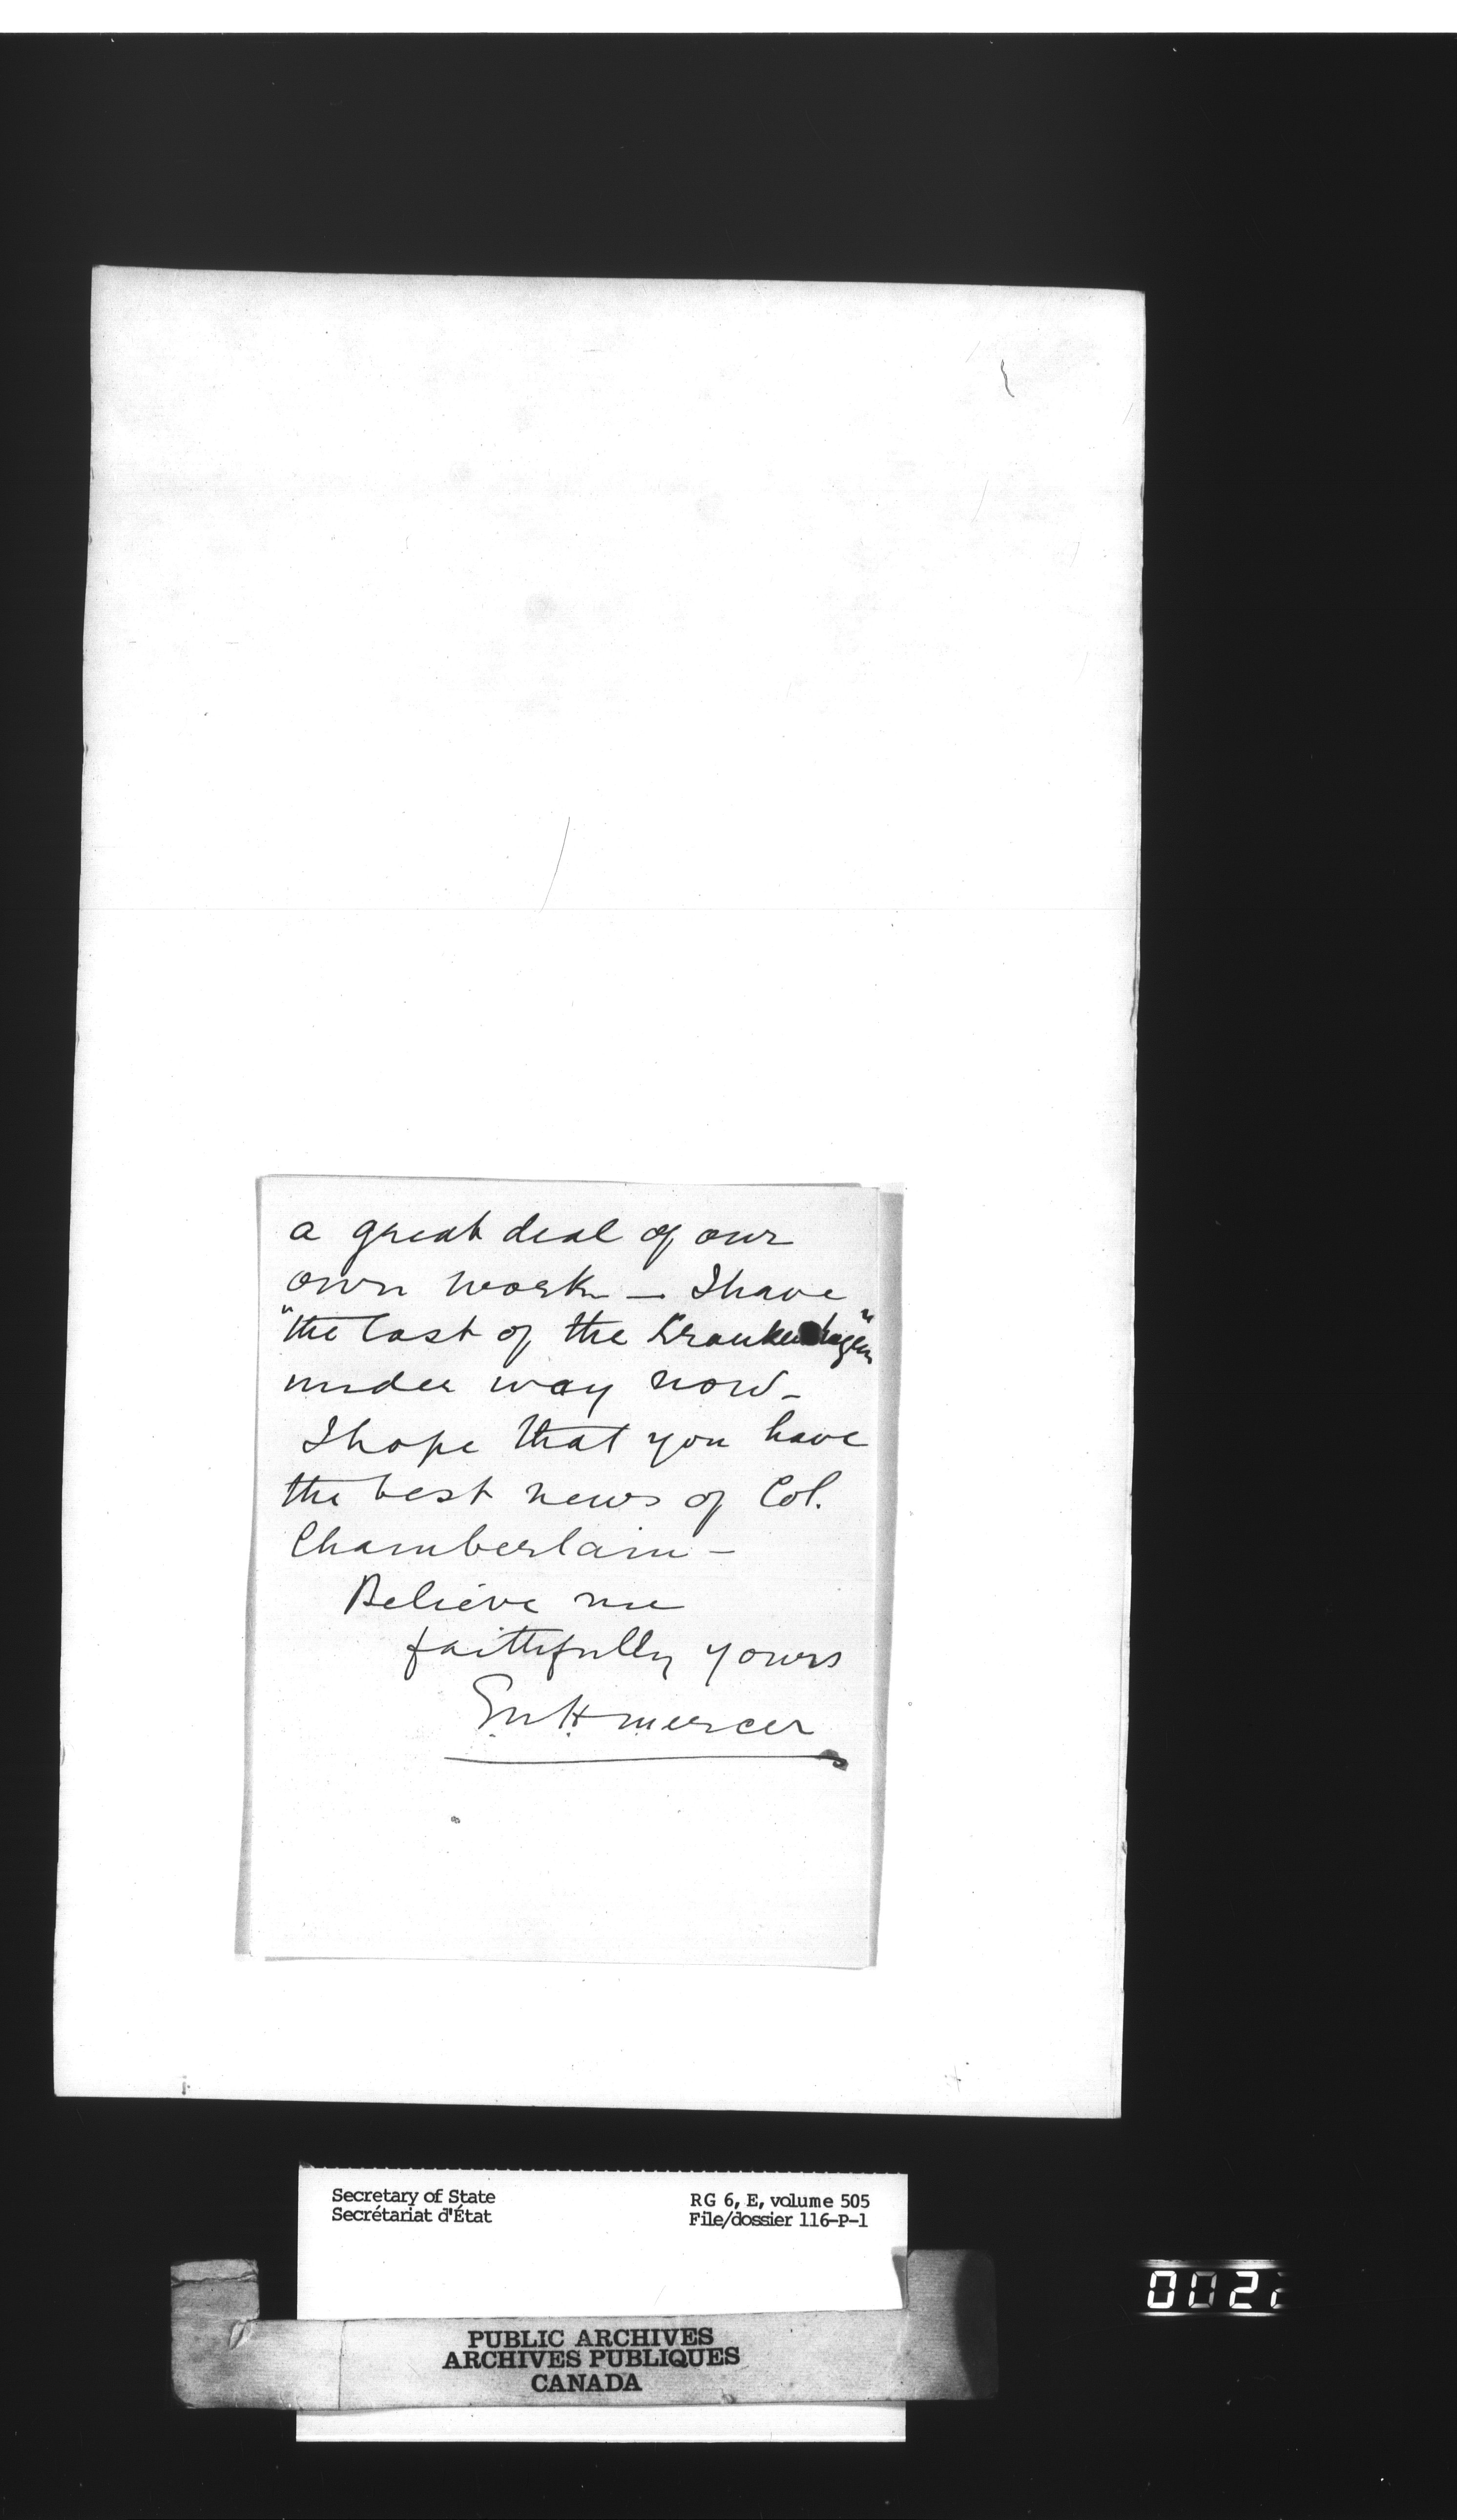 a great deal of our
own work — I have
"the last of the
under way now –
I hope that you have
the best news of Col.
Chamberlain –
Believe me
faithfully yours
Mercer
Secretary of State
Secrétariat d'État
RG 6, E, volume 505
File/dossier 116-P-1
PUBLIC ARCHIVES
ARCHIVES PUBLIQUES
CANADA